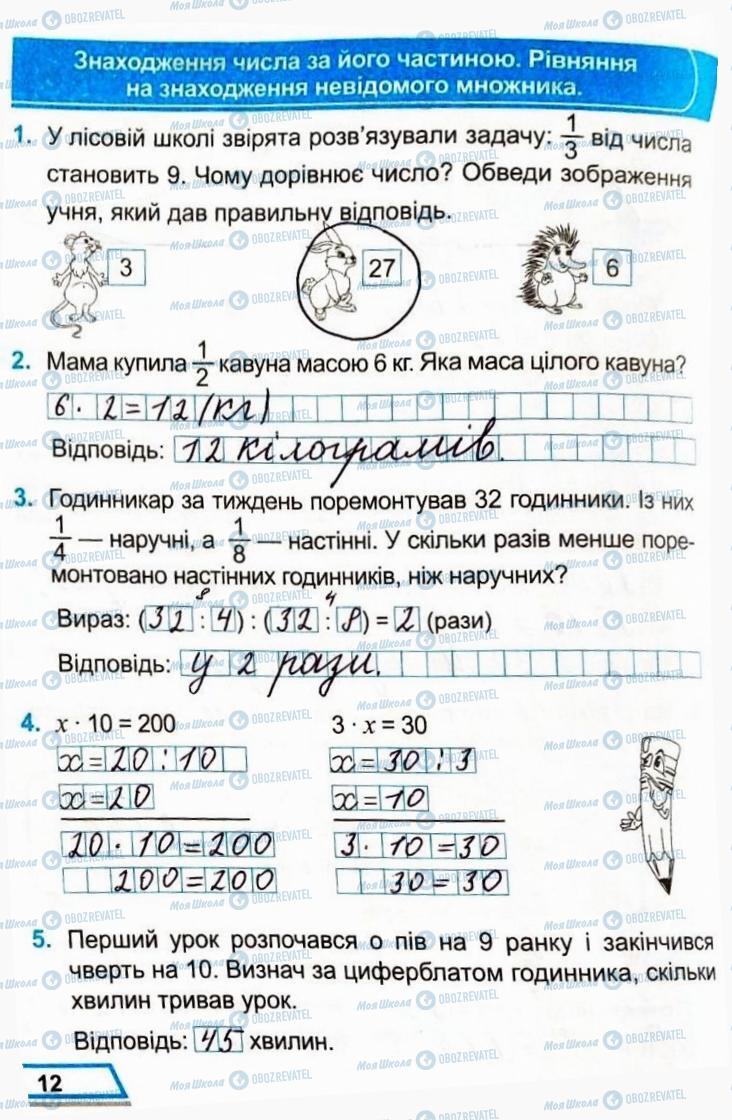 Знаходження числа за його частиною. Рівняння
на знаходження невідомого множника.
1. У лісовій школі звірята розв'язували задачу: 1/3 від числа
становить 9. Чому дорівнює число? Обведи зображення
учня, який дав правильну відповідь.
3 27 6
2. Мама купила 1/2 кавуна масою 6 кг. Яка маса цілого кавуна?
6 · 2 = 12 (кг)
Відповідь: 12 кілограмів.
3. Годинникар за тиждень поремонтував 32 годинники. Із них
1/4 — наручні, а 1/8 — настінні. У скільки разів менше поре-
монтовано настінних годинників, ніж наручних?
8 4
Вираз: (32 : 4) : (32 : 8) = 2 (рази)
Відповідь: у 2 рази.
4. x · 10 = 200 3 · x = 30
x = 20 : 10 x = 30 : 3
x = 20 x = 10
20 · 10 = 200 3 · 10 = 30
200 = 200 30 = 30
5. Перший урок розпочався о пів на 9 ранку і закінчився
чверть на 10. Визнач за циферблатом годинника, скільки
хвилин тривав урок.
Відповідь: 45 хвилин.
12
МояШкола OBOZREVATEL